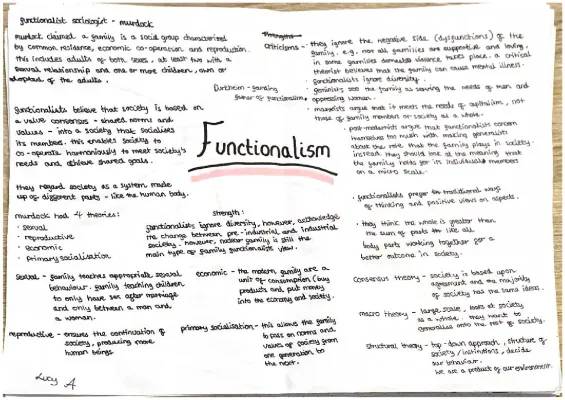 functionalist sociologist - murdock
murdock claimed a family is a social group characterised
by common residence, economic co-operation and reproduction.
this includes adults of both sexes, at least two with a
sexual relationship and one or more children, own or
adopted of the adults.
Durkheim - founding
father of functionalism
functionalists believe that society is based on
a value consensus - shared norms and
values - into a society that socialises
its members. this enables society to
co-operate harmoniously to meet society's
needs and achieve shared goals.
they regard society as a system made
up of different parts - like the human body.
murdock had 4 theories:
• sexual
• reproductive
• economic
• primary socialisation
sexual - family teaches appropriate sexual
behaviour. family teaching children
to only have sex after marriage
and only between a man and
a woman.
reproductive - ensures the continuation of
society, producing more
human beings
Lucy A
Functionalism
strength:
functionalists ignore diversity, however, acknowledge
the change between pre-industrial and industrial
society. however, nuclear family is still the
main type of family functionalists view.
economic - the modern family are a
unit of consumption (buy
products and put money
into the economy and society.
primary socialisation - this allows the family
to pass on norms and
values of society from
one generation, to
the next.
criticisms - they ignore the negative side (dysfunctions) of the
family, e.g. not all families are supportive and loving,
in some families domestic violence takes place. a critical
theorist believes that the family can cause mental illness.
• functionalists ignore diversity
• feminists see the family as serving the needs of men and
oppressing women.
• marxists argue that it meets the needs of capitalism, not
those of family members or society as a whole.
• post-modernists argue that functionalists concern
themselves too much with making generalisations
about the role that the family plays in society,
instead they should look at the meaning that
the family holds for its individual members
on a micro scale.
• functionalists prefer traditional ways
of thinking and positive views on aspects.
• they think the whole is greater than
the sum of parts like all
body parts working together for a
better outcome in society.
consensus theory - society is based upon
agreement and the majority
of society has the same ideas.
macro theory - large scale, looks at society
as a whole. they want to
generalise onto the rest of society.
structural theory - top-down approach, structure of
society/institutions, decide
our behaviour.
we are a product of our environment.